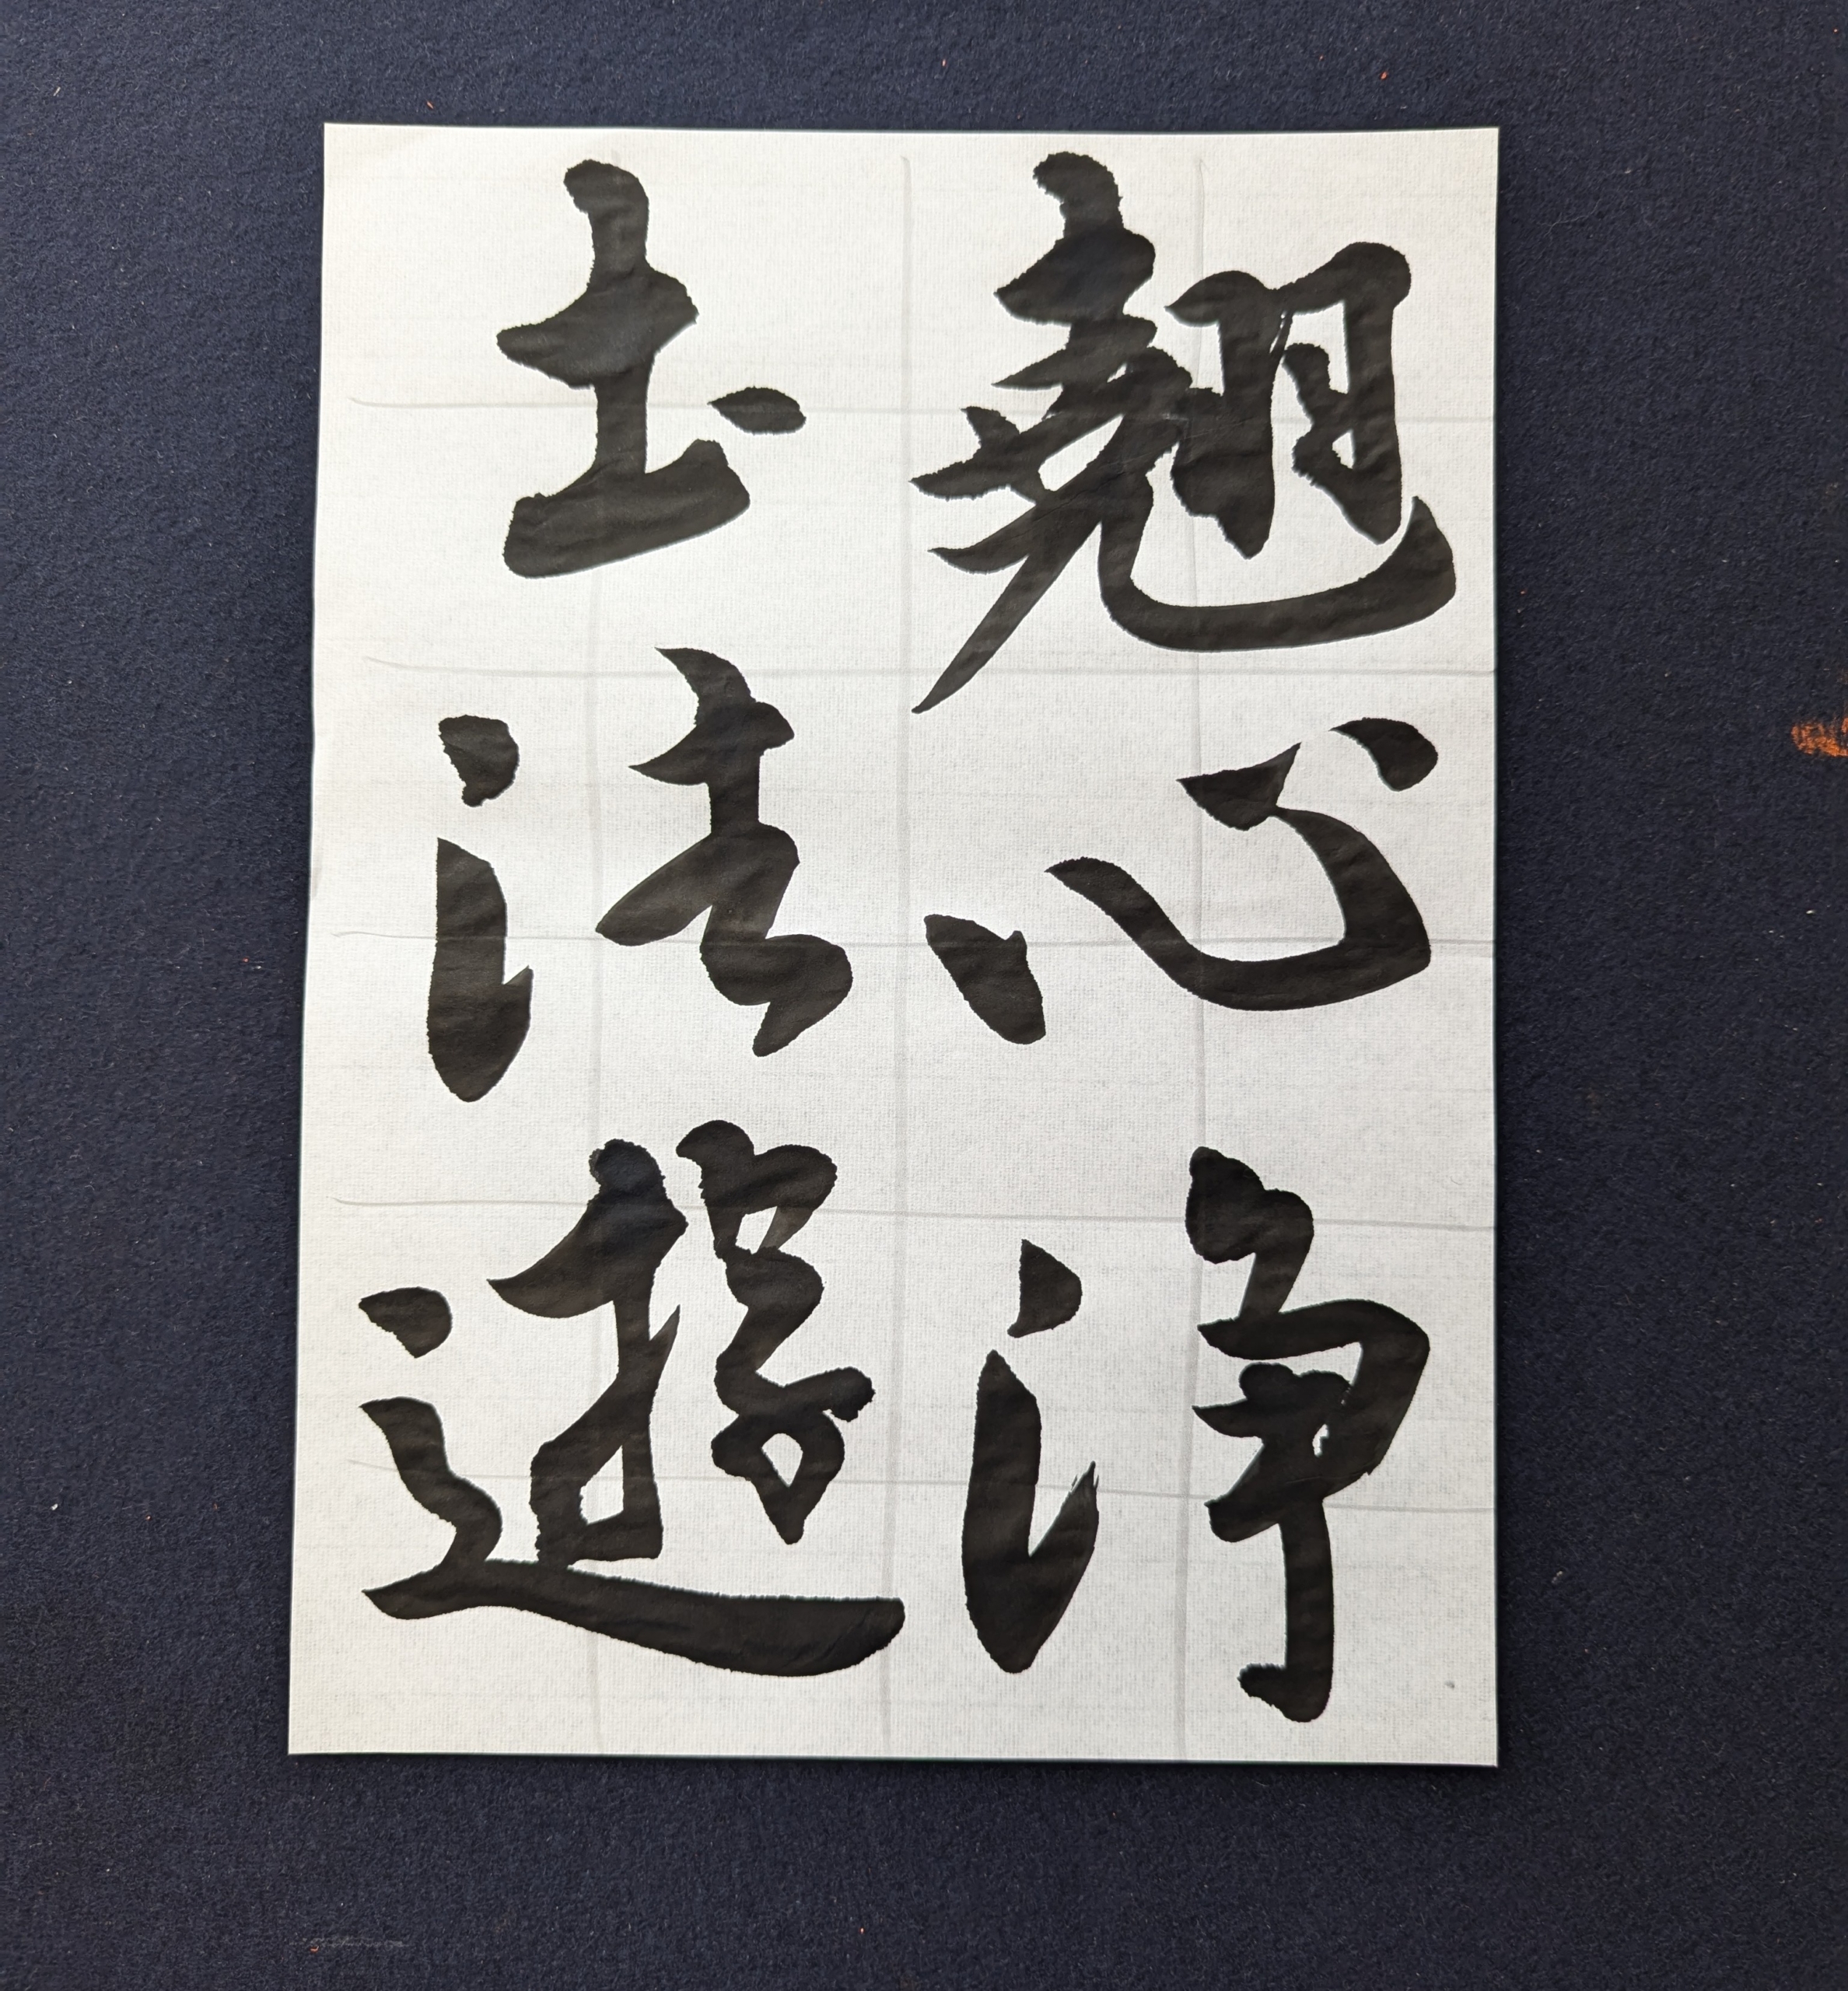 翹心浄
土法遊